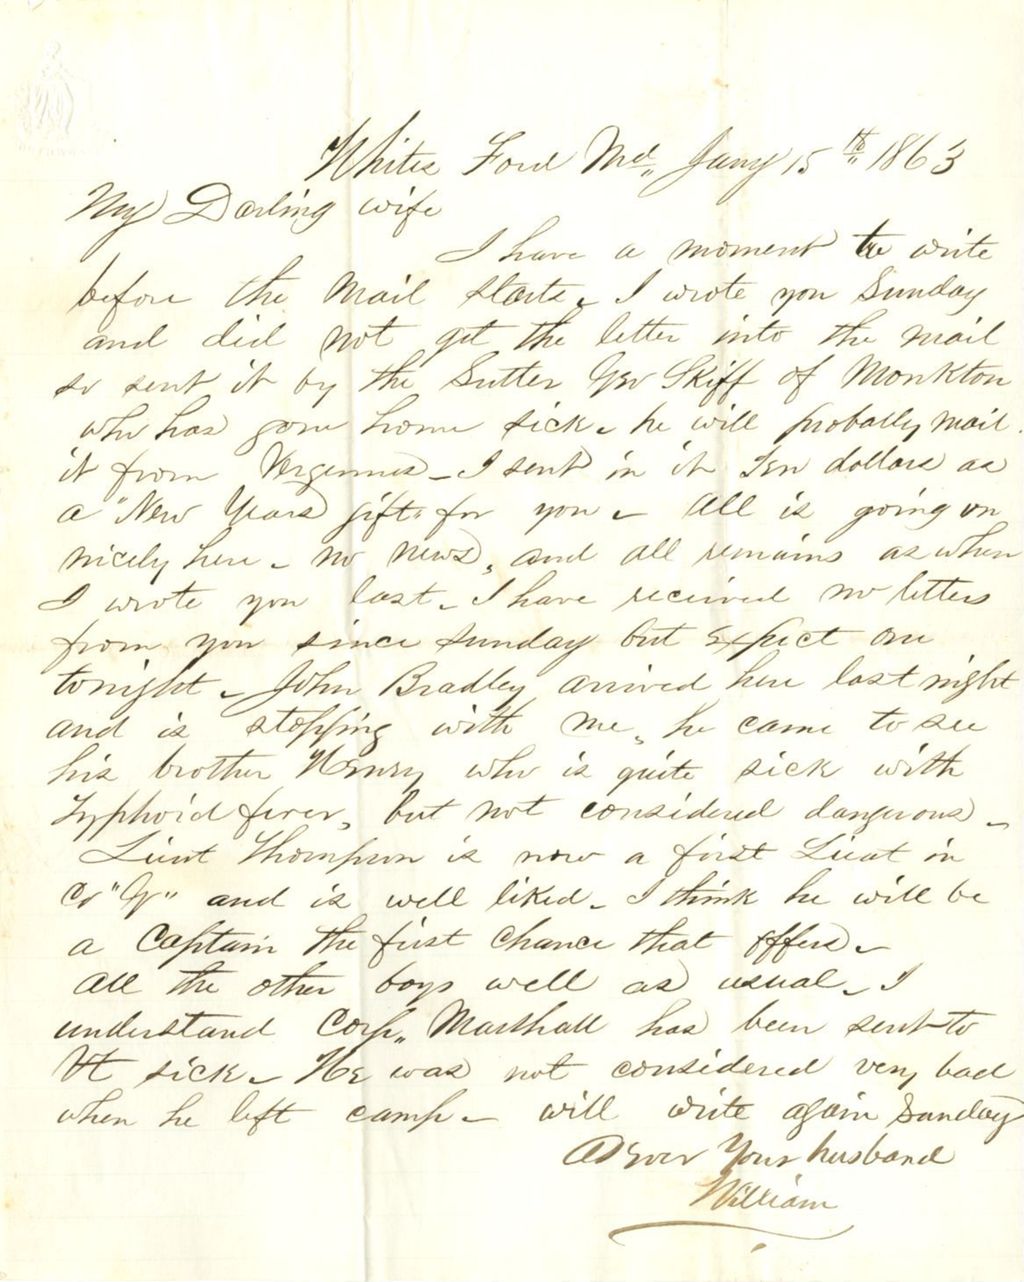 Whites Ford Md„ Jany 15th 1863
My Darling wife
I have a moment to write
before the Mail starts – I wrote you Sunday
and did not get the letter into the mail
so sent it by the Sutler Geo Skiff of Monkton
who has gone home sick – he will probably mail
it from Vergennes – I sent in it Ten dollars as
a "New Years gift" for you – All is going on
nicely here – no news, and all remains as when
I wrote you last – I have received no letters
from you since Sunday but Expect one
tonight – John Bradley arrived here last night
and is stopping with me, he came to see
his brother Henry who is quite sick with
Typhoid fever, but not considered dangerous –
Lieut Thompson is now a first Lieut in
Co "G" and is well liked – I think he will be
a Captain the first Chance that offers –
All the other boys well as usual – I
understand Corp„ Marshall has been sent to
Vt sick – He was not considered very bad
when he left camp – will write again Sunday
As Ever Your husband
William